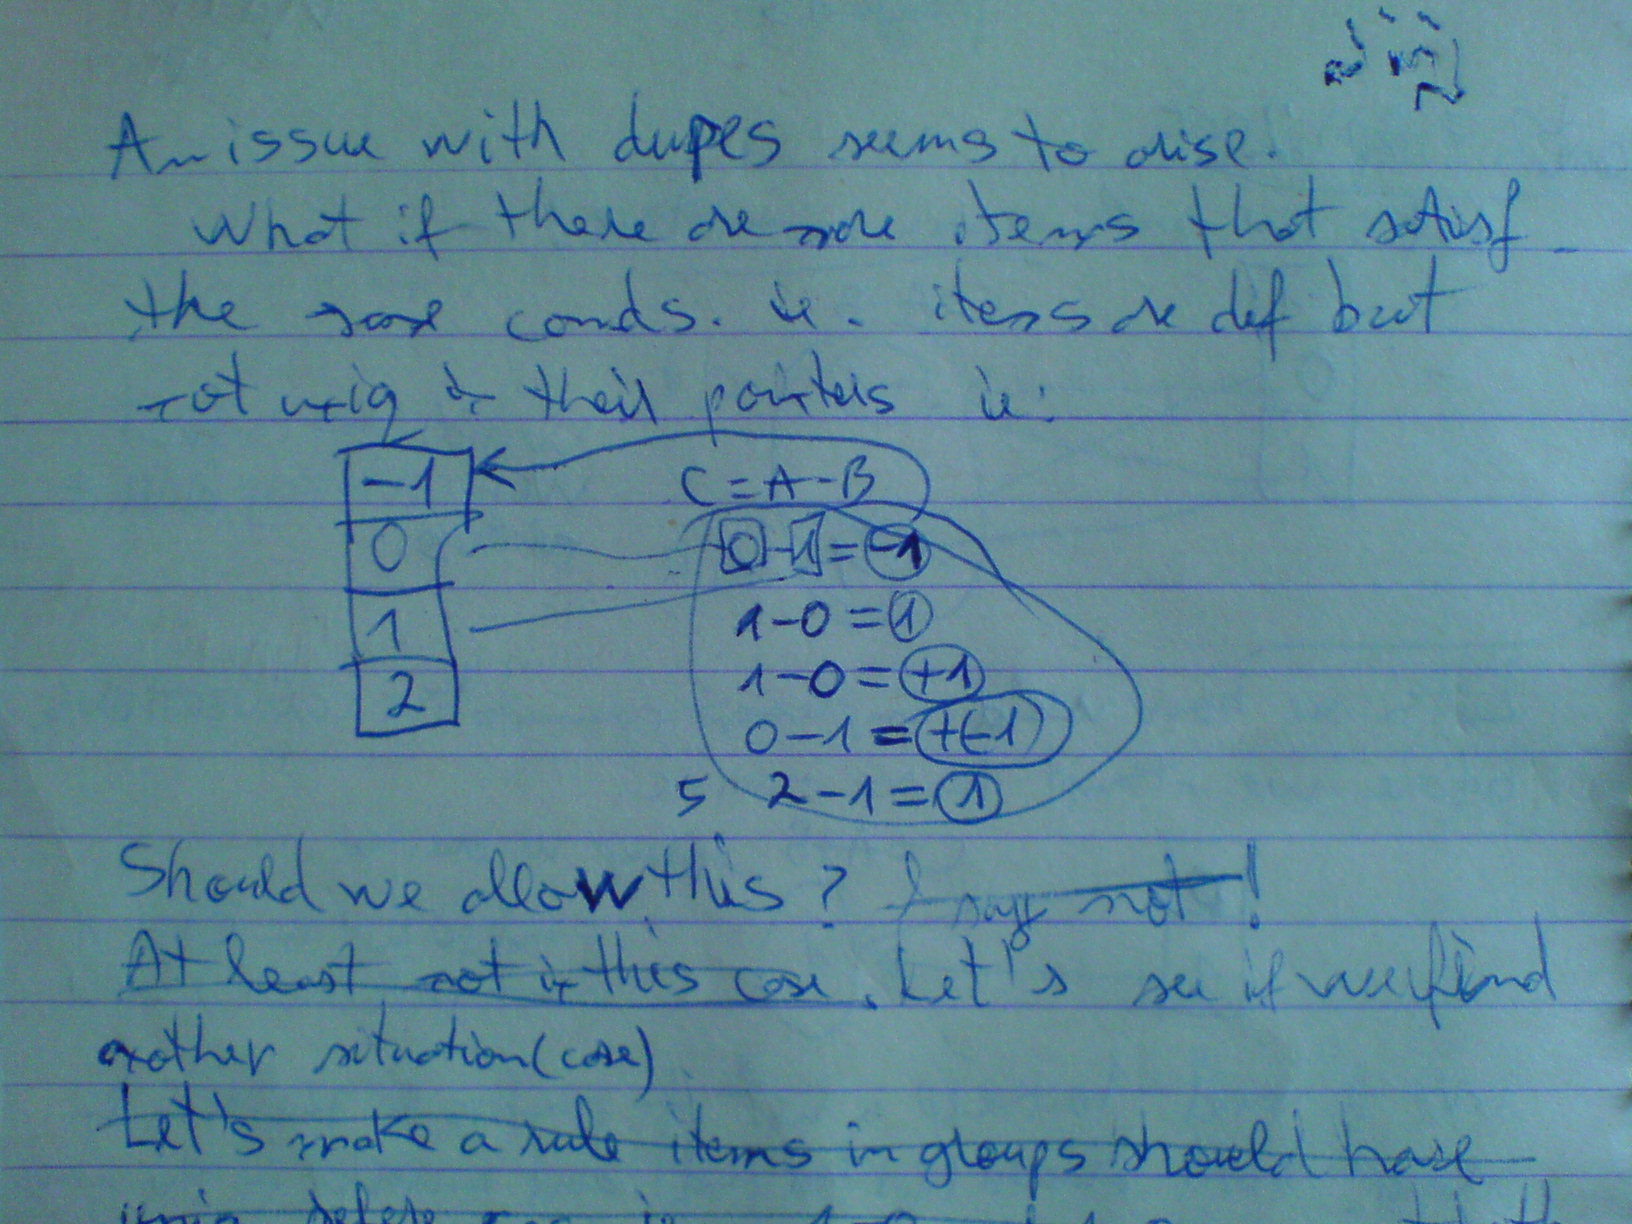 An issue with dupes seems to arise.
What if there are more items that satisf
the same conds. ie. items are def but
not uniq in their pointers ie:
-1
0
1
2
C=A-B
0-1=-1
1-0=1
1-0=+1
0-1=+(-1)
5 2-1=1
Should we allow this? I say not!
At least not in this case. Let's see if we find
another situation(case)
Let's make a rule items in groups should have
uniq